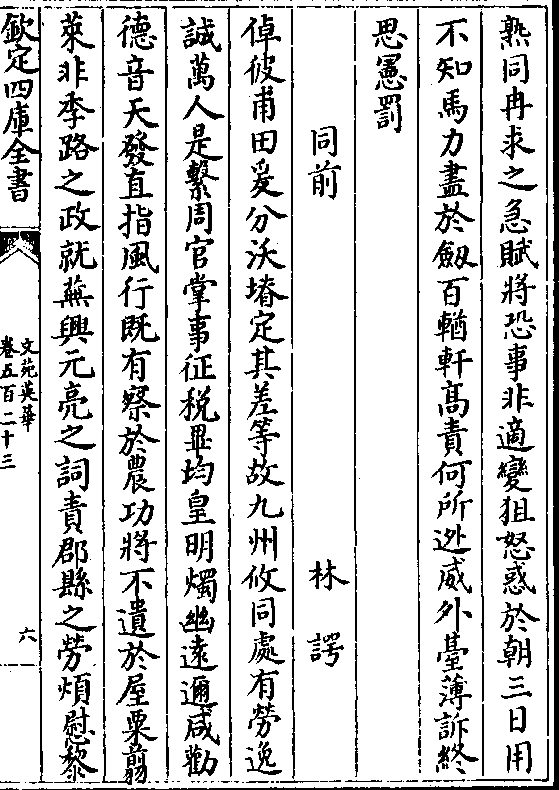 熟同冉求之急賦將恐事非適變狙怒惑於朝三日用
不知馬力盡於劔百輶軒髙責何所逃威外臺薄訴終
思憲罰
同前 林諤
倬彼甫田爰分沃塉定其差等故九州攸同處有勞逸
誠萬人是繫周官掌事征税畢均皇明燭幽逺邇咸勸
德音天發直指風行既有察於農功將不遺於屋粟翦
萊非季路之政就蕪興元亮之詞責郡縣之勞煩慰黎
欽定四庫全書
文苑英華
卷五百二十三
六